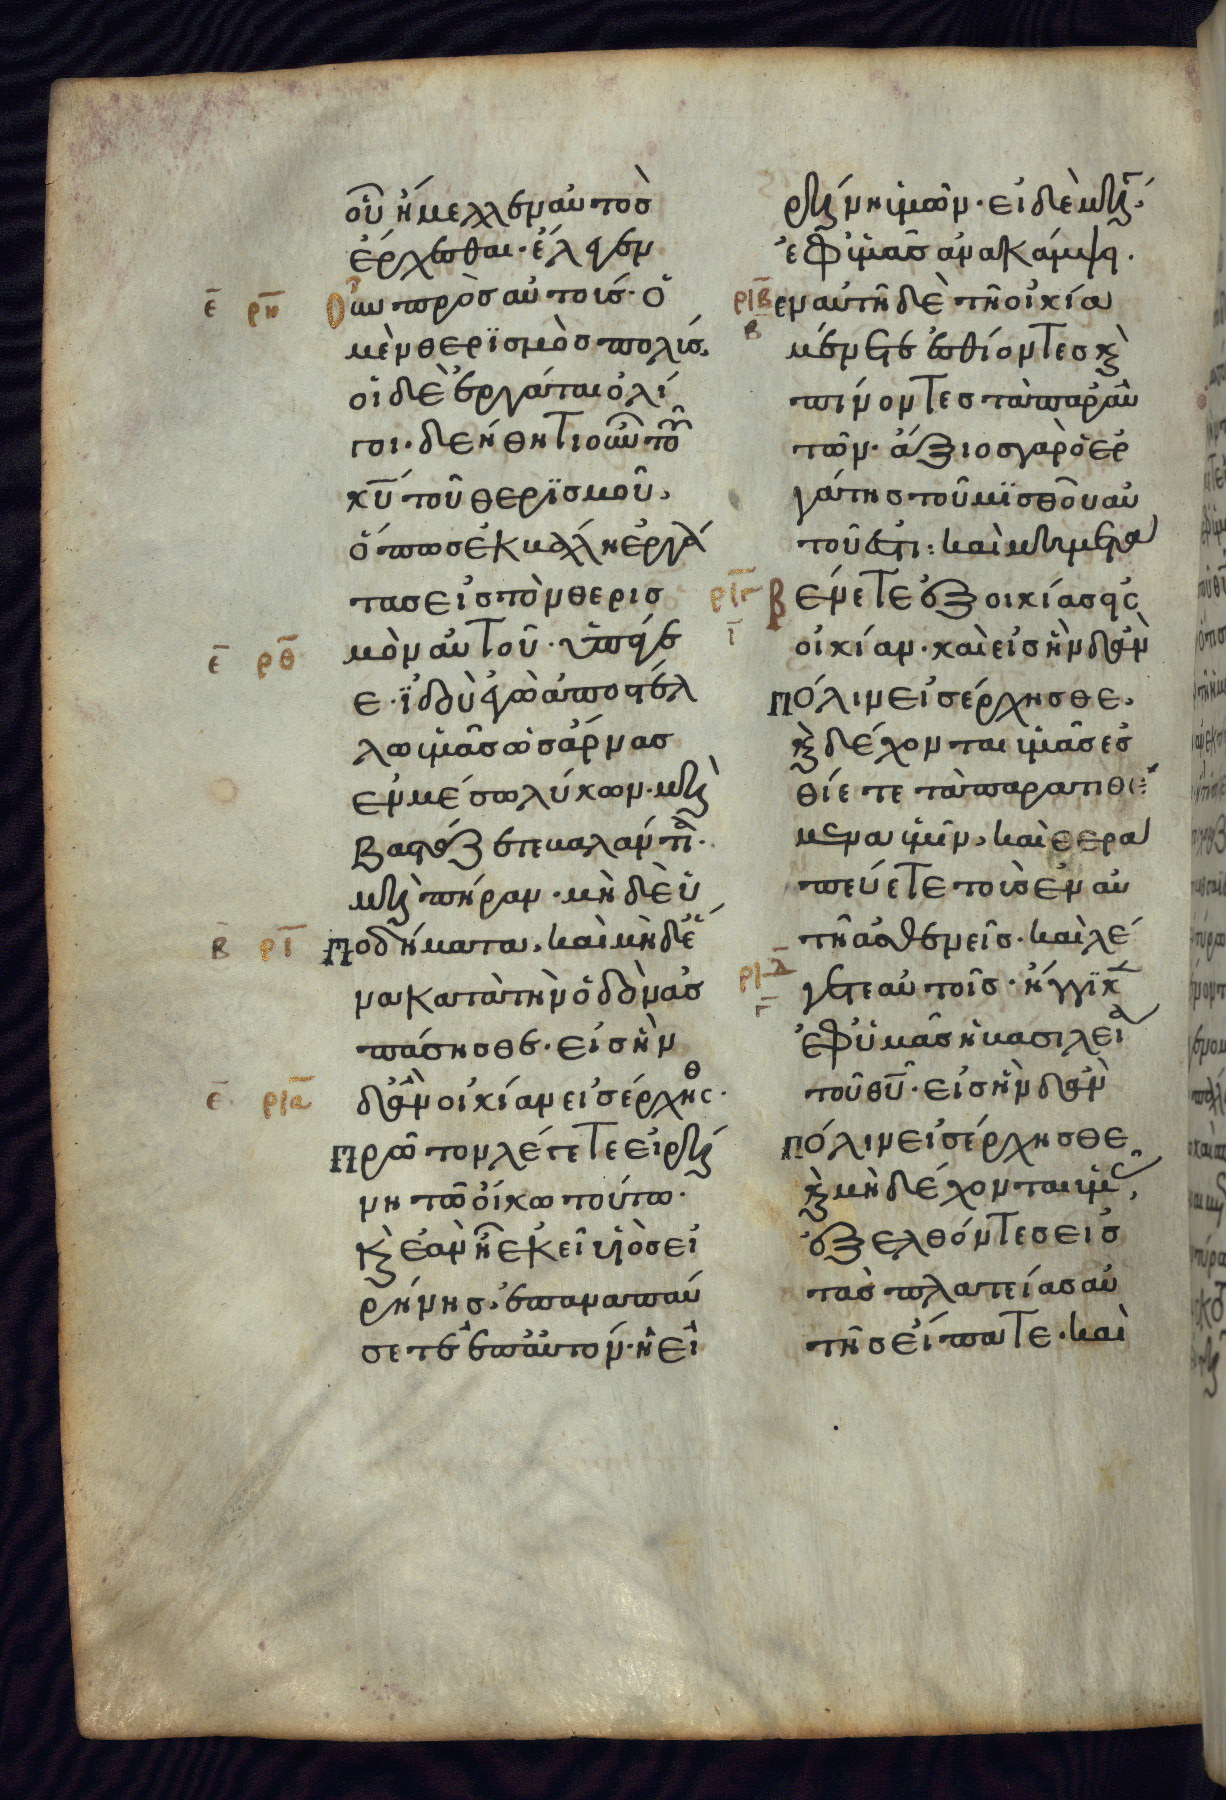 οὗ ἤμελλεν αὐτὸσ
ἔρχεσθαι· ἔλεγεν
ε̄ ρη̄ Οὖν πρὸσ αὐτοισ· ὁ
μὲν θερϊσμὸσ πολισ,
οἱ δὲ ἐργάται ὀλί
γοι· δεήθητι οὖν τοῦ
κ̅υ̅ τοῦ θερϊσμοῦ,
ὅπωσ ἐκβάλλη ἐργά
τασ εἰσ τὸν θερισ
ε̄ ρθ̄ μὸν αὐτοῦ· ὑπάγετ
ε· ϊδοὺ ἐγὼ ἀποστέλ
λω ὑμᾶσ ὡσ ἄρνασ
ἐν μέσω λύκων· μὴ
βαστάζετε βαλάντι̅
μὴ πήραν· μὴ δὲ ὑ
β̄ ρῑ Ποδήματα, καὶ μὴ δέ
να κατὰ τὴν ὁδὸν ἀσ
πάσησθε· εἰσ ἣν
ε̄ ρια̅ δ' ἂν οἰκίαν εἰσέρχησθ·
Πρῶτον λέγετε εἰρή
νη τῶ οἴκω τούτω·
κ̀ ἐὰν ἦ ἐκεῖ υἱὸσ εἰ
ρήνησ, ἐπαναπαύ
σεται ἐπ' αὐτόν· ἡ εἰ
ρήνη ὑμῶν· εἰ δὲ μήγ
ἐφ ὑμᾶσ ἀνακάμψει.
ριβ̄ β ἐν αὐτῆ δὲ τῆ οἰκία
μένετε ἐσθίοντεσ κ̀
πίνοντεσ τὰ παρ αὐ
τῶν· ἄξιοσ γὰρ ὁ ἐρ
γάτησ τοῦ μϊσθοῦ αὐ
τοῦ ἐστι: καὶ μὴ μετα
ριγ̄ ῑ Βένετε ἐξ οἰκίασ εἰσ
οἰκίαν· καὶ εἰσ ἣν δ' ἂν
Πόλιν εἰσέρχησθε,
κ̀ δέχονται ὑμᾶσ ἐσ
θίετε τὰ παρατιθέ
μενα ὑμῖν, καὶ θερα
πεύετε τοὺσ ἐν αυ
τῆ ἀσθενεῖσ· καὶ λέ
ριδ̄ γ̄ γετε αὐτοῖσ· ἤγγϊκ
ἐφ ὑμᾶσ ἡ βασιλεία
τοῦ θ̅υ̅· εἰσ ἣν δ' ἂν
Πόλιν εἰσέρχησθε
κ̀ μὴ δέχονται ὑμ,
ἐξελθόντεσ εἰσ
τὰσ πλατείασ αὐ
τῆσ εἴπατε· καὶ